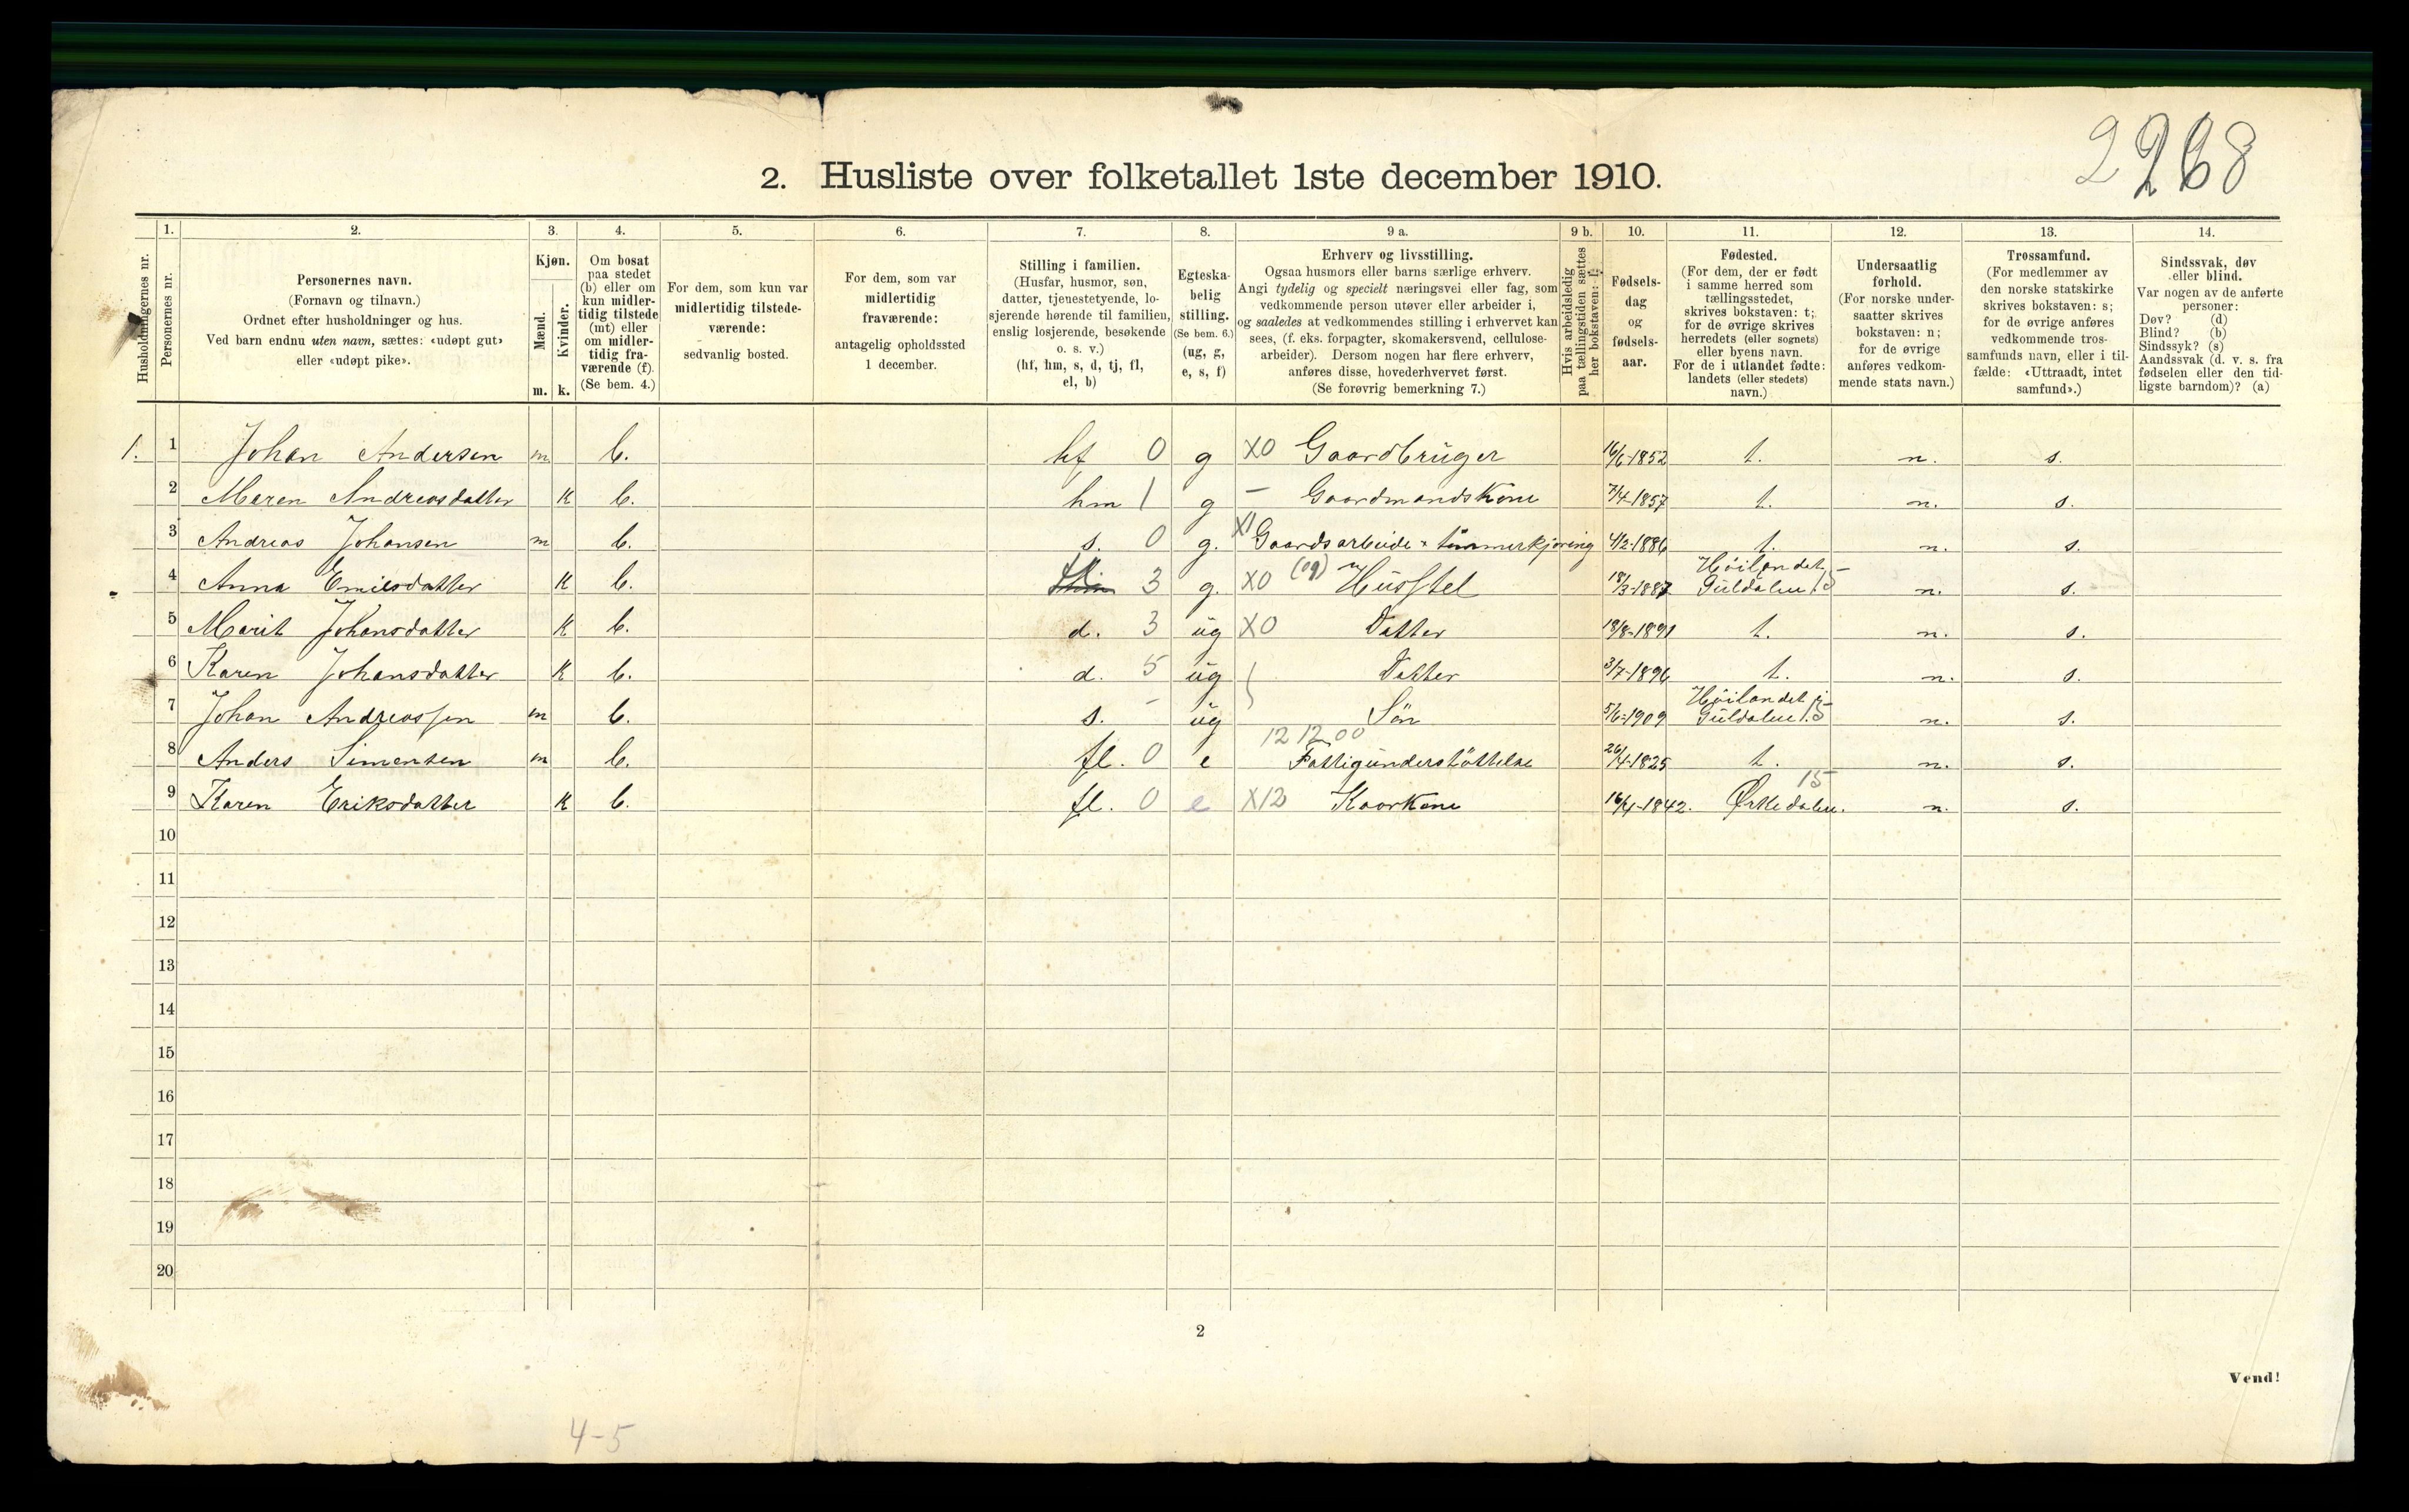 2268
2. Husliste over folketallet 1ste december 1910.
Husholdningernes nr.
1.
Personernes nr.
2.
Personernes navn.
(Fornavn og tilnavn.)
Ordnet efter husholdninger og hus.
Ved barn endnu uten navn, sættes: «udøpt gut»
eller «udøpt pike».
3.
Kjøn.
Mænd.
Kvinder.
m. k.
4.
Om bosat
paa stedet
(b) eller om
kun midler-
tidig tilstede
(mt) eller
om midler-
tidig fra-
værende (f).
(Se bem. 4.)
5.
For dem, som kun var
midlertidig tilstede-
værende:
sedvanlig bosted.
6.
For dem, som var
midlertidig
fraværende:
antagelig opholdssted
1 december.
7.
Stilling i familien.
(Husfar, husmor, søn,
datter, tjenestetyende, lo-
sjerende hørende til familien,
enslig losjerende, besøkende
o. s. v.)
(hf, hm, s, d, tj, fl,
el, b)
8.
Egteska-
belig
stilling.
(Se bem. 6.)
(ug, g,
e, s, f)
9 a.
Erhverv og livsstilling.
Ogsaa husmors eller barns særlige erhverv.
Angi tydelig og specielt næringsvei eller fag, som
vedkommende person utøver eller arbeider i,
og saaledes at vedkommendes stilling i erhvervet kan
sees, (f. eks. forpagter, skomakersvend, cellulose-
arbeider). Dersom nogen har flere erhverv,
anføres disse, hovederhvervet først.
(Se forøvrig bemerkning 7.)
9 b.
Hvis arbeidsledig
paa tællingstiden sættes
her bokstaven: l.
10.
Fødsels-
dag
og
fødsels-
aar.
11.
Fødested.
(For dem, der er født
i samme herred som
tællingsstedet,
skrives bokstaven: t;
for de øvrige skrives
herredets (eller sognets)
eller byens navn.
For de i utlandet fødte:
landets (eller stedets)
navn.)
12.
Undersaatlig
forhold.
(For norske under-
saatter skrives
bokstaven: n;
for de øvrige
anføres vedkom-
mende stats navn.)
13.
Trossamfund.
(For medlemmer av
den norske statskirke
skrives bokstaven: s;
for de øvrige anføres
vedkommende tros-
samfunds navn, eller i til-
fælde: «Uttraadt, intet
samfund».)
14.
Sindssvak, døv
eller blind.
Var nogen av de anførte
personer:
Døv? (d)
Blind? (b)
Sindssyk? (s)
Aandssvak (d. v. s. fra
fødselen eller den tid-
ligste barndom)? (a)
1. 1 Johan Andersen m b. hf 0 g X0 Gaardbruger 16/6-1852 t. n. s.
2 Maren Andreasdatter k b. hm 1 g – Gaardmandskone 7/4-1857 t. n. s.
3 Andreas Johansen m b. s. 0 g. X1 Gaardsarbeide tømmerkjøring 4/2-1886 t. n. s.
4 Anna Emilsdatter k b. fl 3 g. X0 (og) Husstel 18/3-1887 Høilandet Guldalen 15 n. s.
5 Marit Johansdatter k b. d. 3 ug X0 Datter 18/8-1891 t. n. s.
6 Karen Johansdatter k b. d. 5 ug Datter 3/7-1896 t. n. s.
7 Johan Andreassen m b. s. – ug Søn 5/6-1909 Høilandet i Guldalen 15 n. s.
8 Anders Simensen m b. fl. 0 e 12 12.00 Fattigunderstøttelse 26/4-1825 t. n. s.
9 Karen Eriksdatter k b. fl. 0 e X12 Kaarkone 16/4-1842. Ørkedalen. 15 n. s.
10
11
12
13
14
15
16
17
18
19
20
2
Vend!
4-5